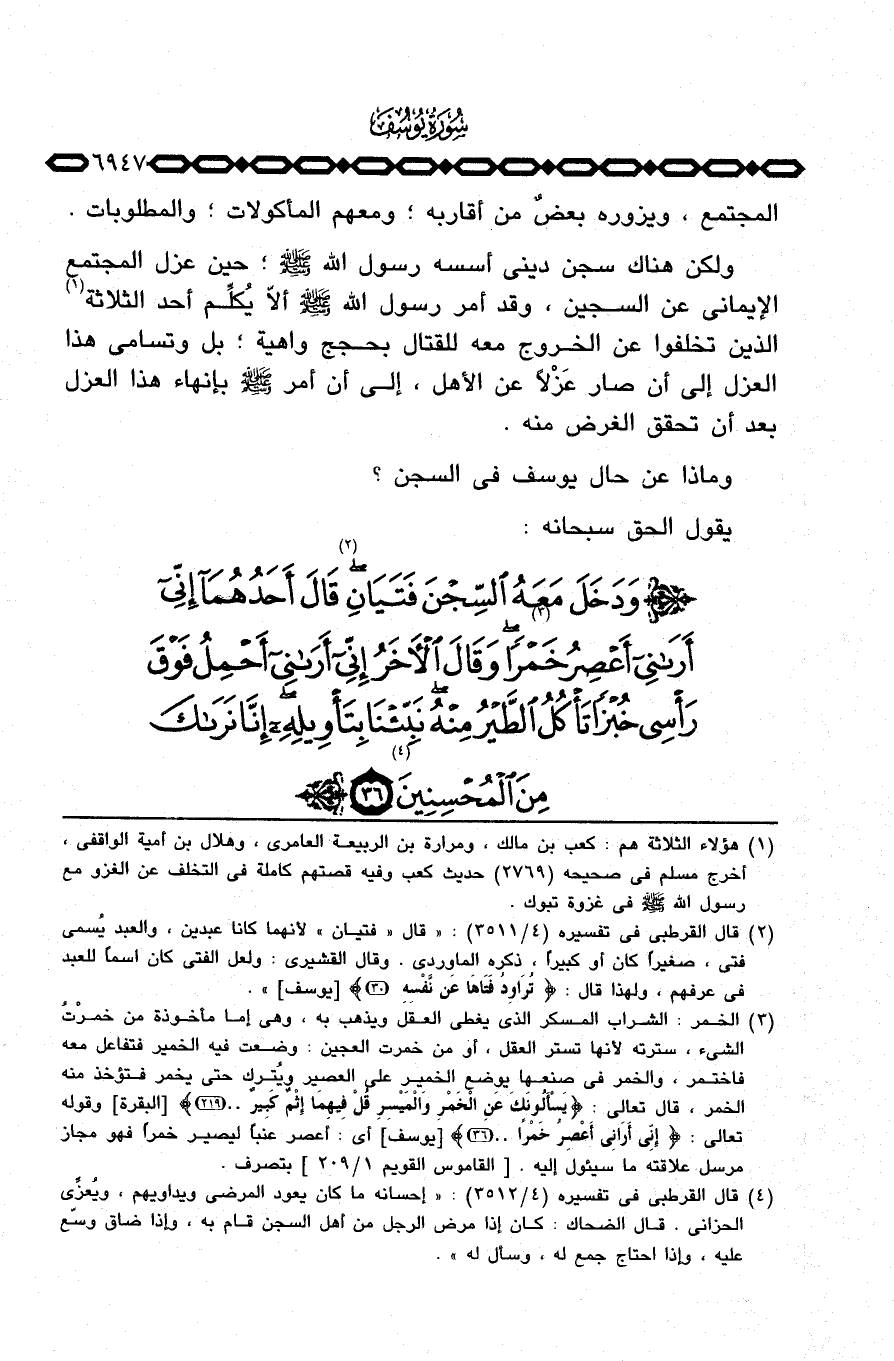 سُورَةُ يُوسُفَ
٦٩٤٧
المجتمع ، ويزوره بعضٌ من أقاربه ؛ ومعهم المأكولات ؛ والمطلوبات .
ولكن هناك سجن دينى أسسه رسول الله ﷺ ؛ حين عزل المجتمع
الإيمانى عن السجين ، وقد أمر رسول الله ﷺ ألاّ يُكلِّم أحد الثلاثة(١)
الذين تخلفوا عن الخروج معه للقتال بحجج واهية ؛ بل وتسامى هذا
العزل إلى أن صار عَزْلاً عن الأهل ، إلى أن أمر ﷺ بإنهاء هذا العزل
بعد أن تحقق الغرض منه .
وماذا عن حال يوسف فى السجن ؟
يقول الحق سبحانه :
﴿ وَدَخَلَ مَعَهُ ٱلسِّجْنَ فَتَيَانِۖ (٢) قَالَ أَحَدُهُمَآ إِنِّىٓ
أَرَىٰنِىٓ أَعْصِرُ خَمْرًاۖ (٣) وَقَالَ ٱلْأٓخَرُ إِنِّىٓ أَرَىٰنِىٓ أَحْمِلُ فَوْقَ
رَأْسِى خُبْزًا تَأْكُلُ ٱلطَّيْرُ مِنْهُۖ نَبِّئْنَا بِتَأْوِيلِهِۦٓۖ إِنَّا نَرَىٰكَ
مِنَ ٱلْمُحْسِنِينَ (٤) ٣٦ ﴾
(١) هؤلاء الثلاثة هم : كعب بن مالك ، ومرارة بن الربيعة العامرى ، وهلال بن أمية الواقفى ،
أخرج مسلم فى صحيحه (٢٧٦٩) حديث كعب وفيه قصتهم كاملة فى التخلف عن الغزو مع
رسول الله ﷺ فى غزوة تبوك .
(٢) قال القرطبى فى تفسيره (٣٥١١/٤) : « قال « فتيان » لأنهما كانا عبدين ، والعبد يُسمى
فتى ، صغيراً كان أو كبيراً ، ذكره الماوردى . وقال القشيرى : ولعل الفتى كان اسماً للعبد
فى عرفهم ، ولهذا قال : ﴿ تُرَاوِدُ فَتَاهَا عَن نَّفْسِهِ (٣٠)﴾ [يوسف] » .
(٣) الخمر : الشراب المسكر الذى يغطى العقل ويذهب به ، وهى إما مأخوذة من خمرْتُ
الشىء ، سترته لأنها تستر العقل ، أو من خمرت العجين : وضعت فيه الخمير فتفاعل معه
فاختمر ، والخمر فى صنعها يوضع الخمير على العصير ويُترك حتى يخمر فتؤخذ منه
الخمر ، قال تعالى : ﴿يَسْأَلُونَكَ عَنِ الْخَمْرِ وَالْمَيْسِرِ قُلْ فِيهِمَا إِثْمٌ كَبِيرٌ ..(٢١٩)﴾ [البقرة] وقوله
تعالى : ﴿ إِنِّى أَرَانِى أَعْصِرُ خَمْرًا ..(٣٦)﴾ [يوسف] أى : أعصر عنباً ليصير خمراً فهو مجاز
مرسل علاقته ما سيئول إليه . [ القاموس القويم ٢٠٩/١ ] بتصرف .
(٤) قال القرطبى فى تفسيره (٣٥١٢/٤) : « إحسانه ما كان يعود المرضى ويداويهم ، ويُعزِّى
الحزانى . قال الضحاك : كان إذا مرض الرجل من أهل السجن قام به ، وإذا ضاق وسّع
عليه ، وإذا احتاج جمع له ، وسأل له » .